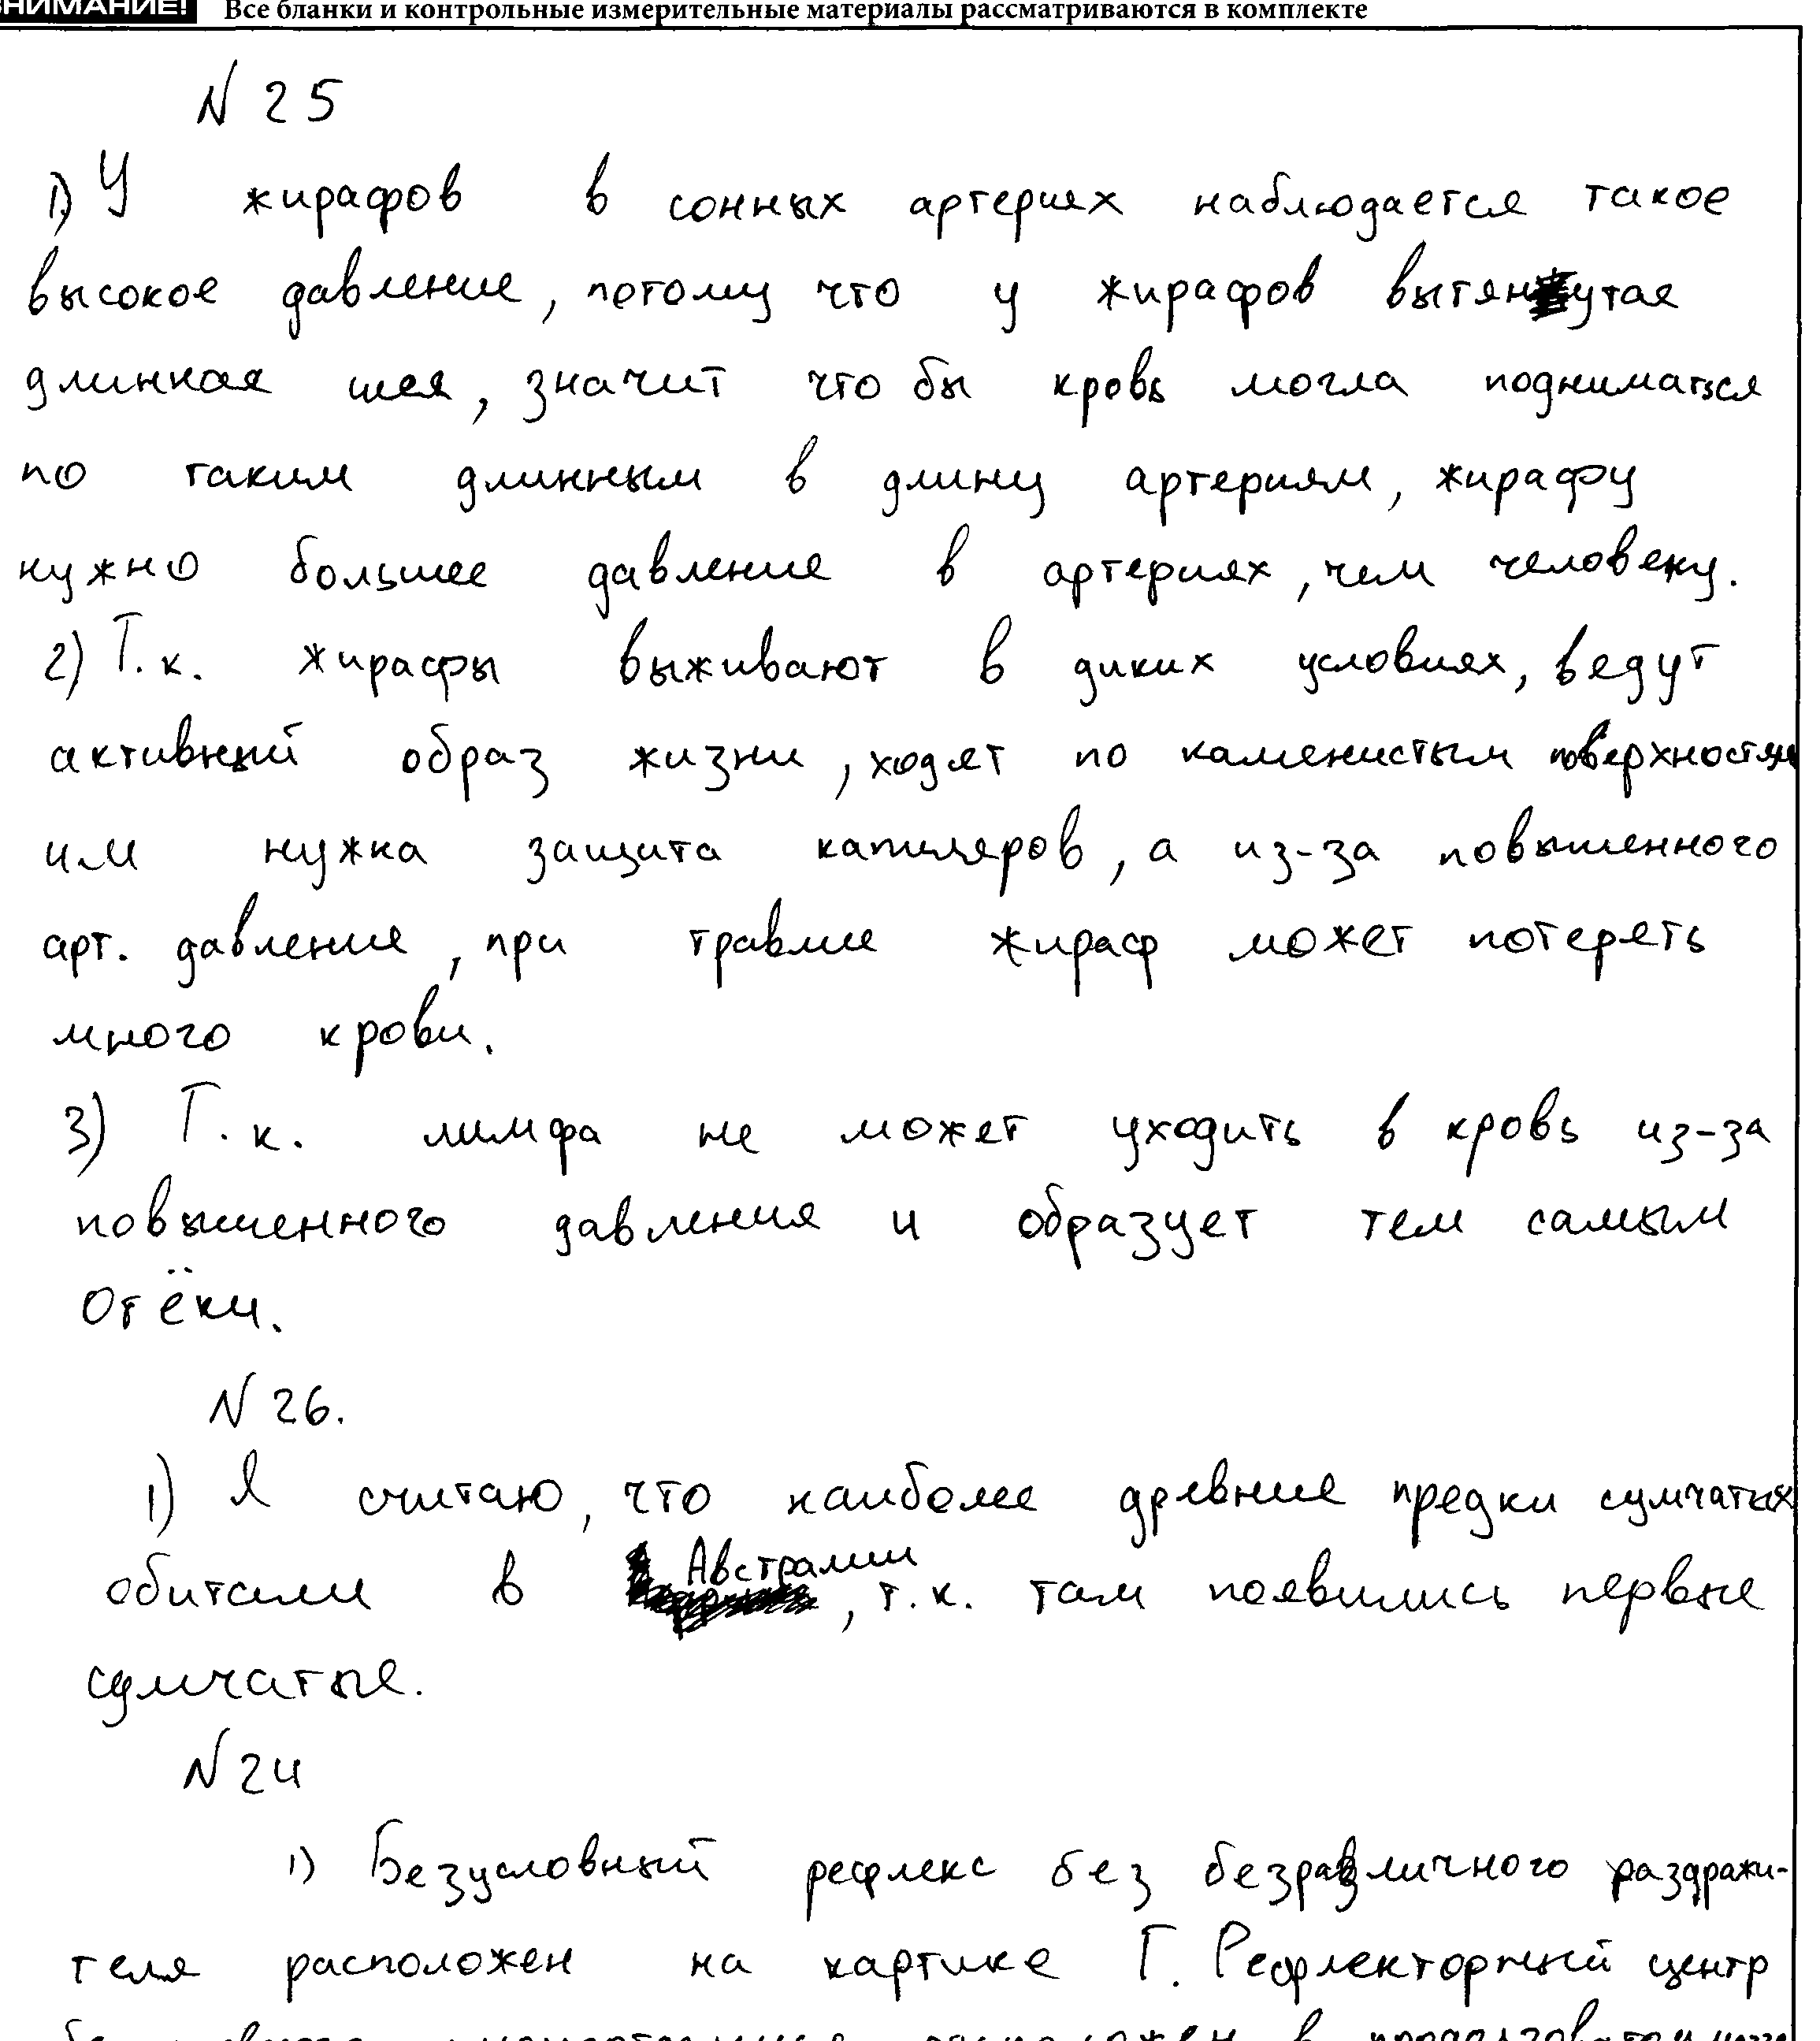 ВНИМАНИЕ! Все бланки и контрольные измерительные материалы рассматриваются в комплекте
N 25
1) У жирафов в сонных артериях наблюдается такое
высокое давление, потому что у жирафов вытянутая
длинная шея, значит что бы кровь могла подниматься
по таким длинным в длину артериям, жирафу
нужно большее давление в артериях, чем человеку.
2) Т.к. жирафы выживают в диких условиях, ведут
активный образ жизни, ходят по каменистым поверхностям
им нужна защита капиляров, а из-за повышенного
арт. давление, при травме жираф может потерять
много крови.
3) Т.к. лимфа не может уходить в кровь из-за
повышенного давления и образует тем самым
отёки.
N 26.
1) Я считаю, что наиболее древние предки сумчатых
обитали в Австралии, т.к. там появились первые
сумчатые.
N 24
1) Безусловный рефлекс без безразличного раздражи-
теля расположен на картике Г. Рефлекторный центр
расположен в